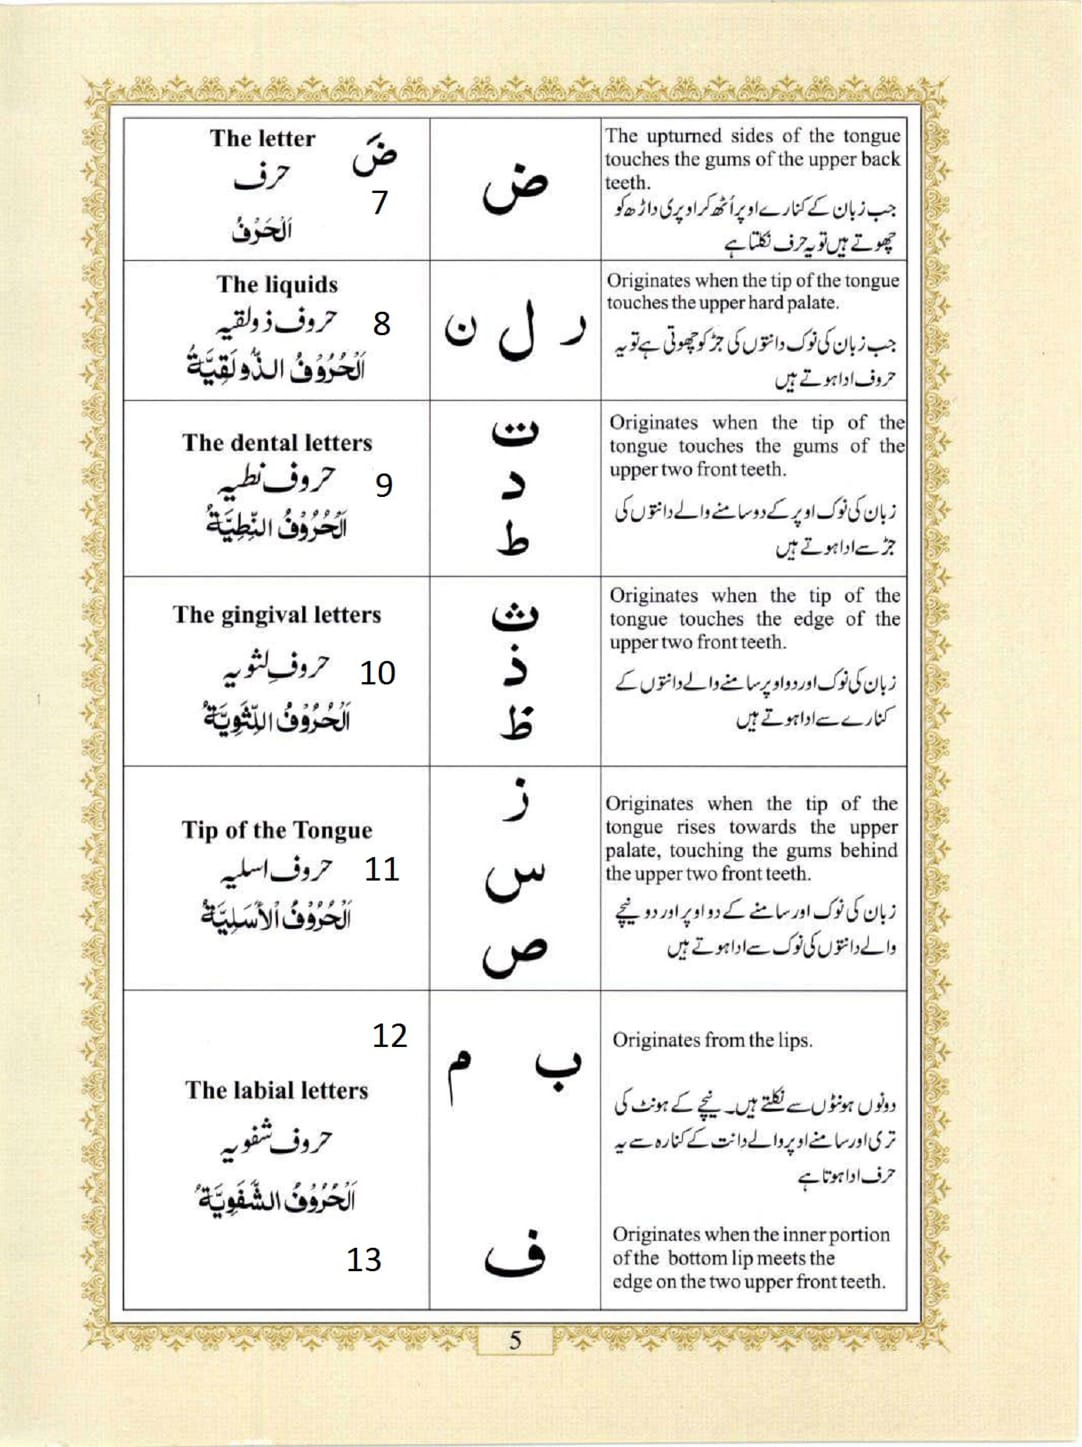 The letter
ضَ
حرف
7
اَلْحَرْفُ
ض
The upturned sides of the tongue
touches the gums of the upper back
teeth.
جب زبان کے کنارے اوپر اُٹھ کر اوپری داڑھ کو
چھوتے ہیں تو یہ حرف نکلتا ہے
The liquids
حروف ذولقیہ
8
اَلْحُرُوْفُ الذَّولَقِيَّةُ
ر ل ن
Originates when the tip of the tongue
touches the upper hard palate.
جب زبان کی نوک دانتوں کی جڑ کو چھوتی ہے تو یہ
حروف ادا ہوتے ہیں
The dental letters
حروف نطیہ
9
اَلْحُرُوْفُ النِّطِيَّةُ
ت
د
ط
Originates when the tip of the
tongue touches the gums of the
upper two front teeth.
زبان کی نوک اوپر کے دو سامنے والے دانتوں کی
جڑ سے ادا ہوتے ہیں
The gingival letters
حروفِ لثویہ
10
اَلْحُرُوْفُ اللِّثَوِيَّةُ
ث
ذ
ظ
Originates when the tip of the
tongue touches the edge of the
upper two front teeth.
زبان کی نوک اور دو اوپر سامنے والے دانتوں کے
کنارے سے ادا ہوتے ہیں
Tip of the Tongue
حروف اسلیہ
11
اَلْحُرُوْفُ الْأَسَلِيَّةُ
ز
س
ص
Originates when the tip of the
tongue rises towards the upper
palate, touching the gums behind
the upper two front teeth.
زبان کی نوک اور سامنے کے دو اوپر اور دو نیچے
والے دانتوں کی نوک سے ادا ہوتے ہیں
12
The labial letters
حروف شفویہ
اَلْحُرُوْفُ الشَّفَوِيَّةُ
13
ب م
Originates from the lips.
دونوں ہونٹوں سے نکلتے ہیں۔ نیچے کے ہونٹ کی
تری اور سامنے اوپر والے دانت کے کنارہ سے یہ
حرف ادا ہوتا ہے
ف
Originates when the inner portion
of the bottom lip meets the
edge on the two upper front teeth.
5